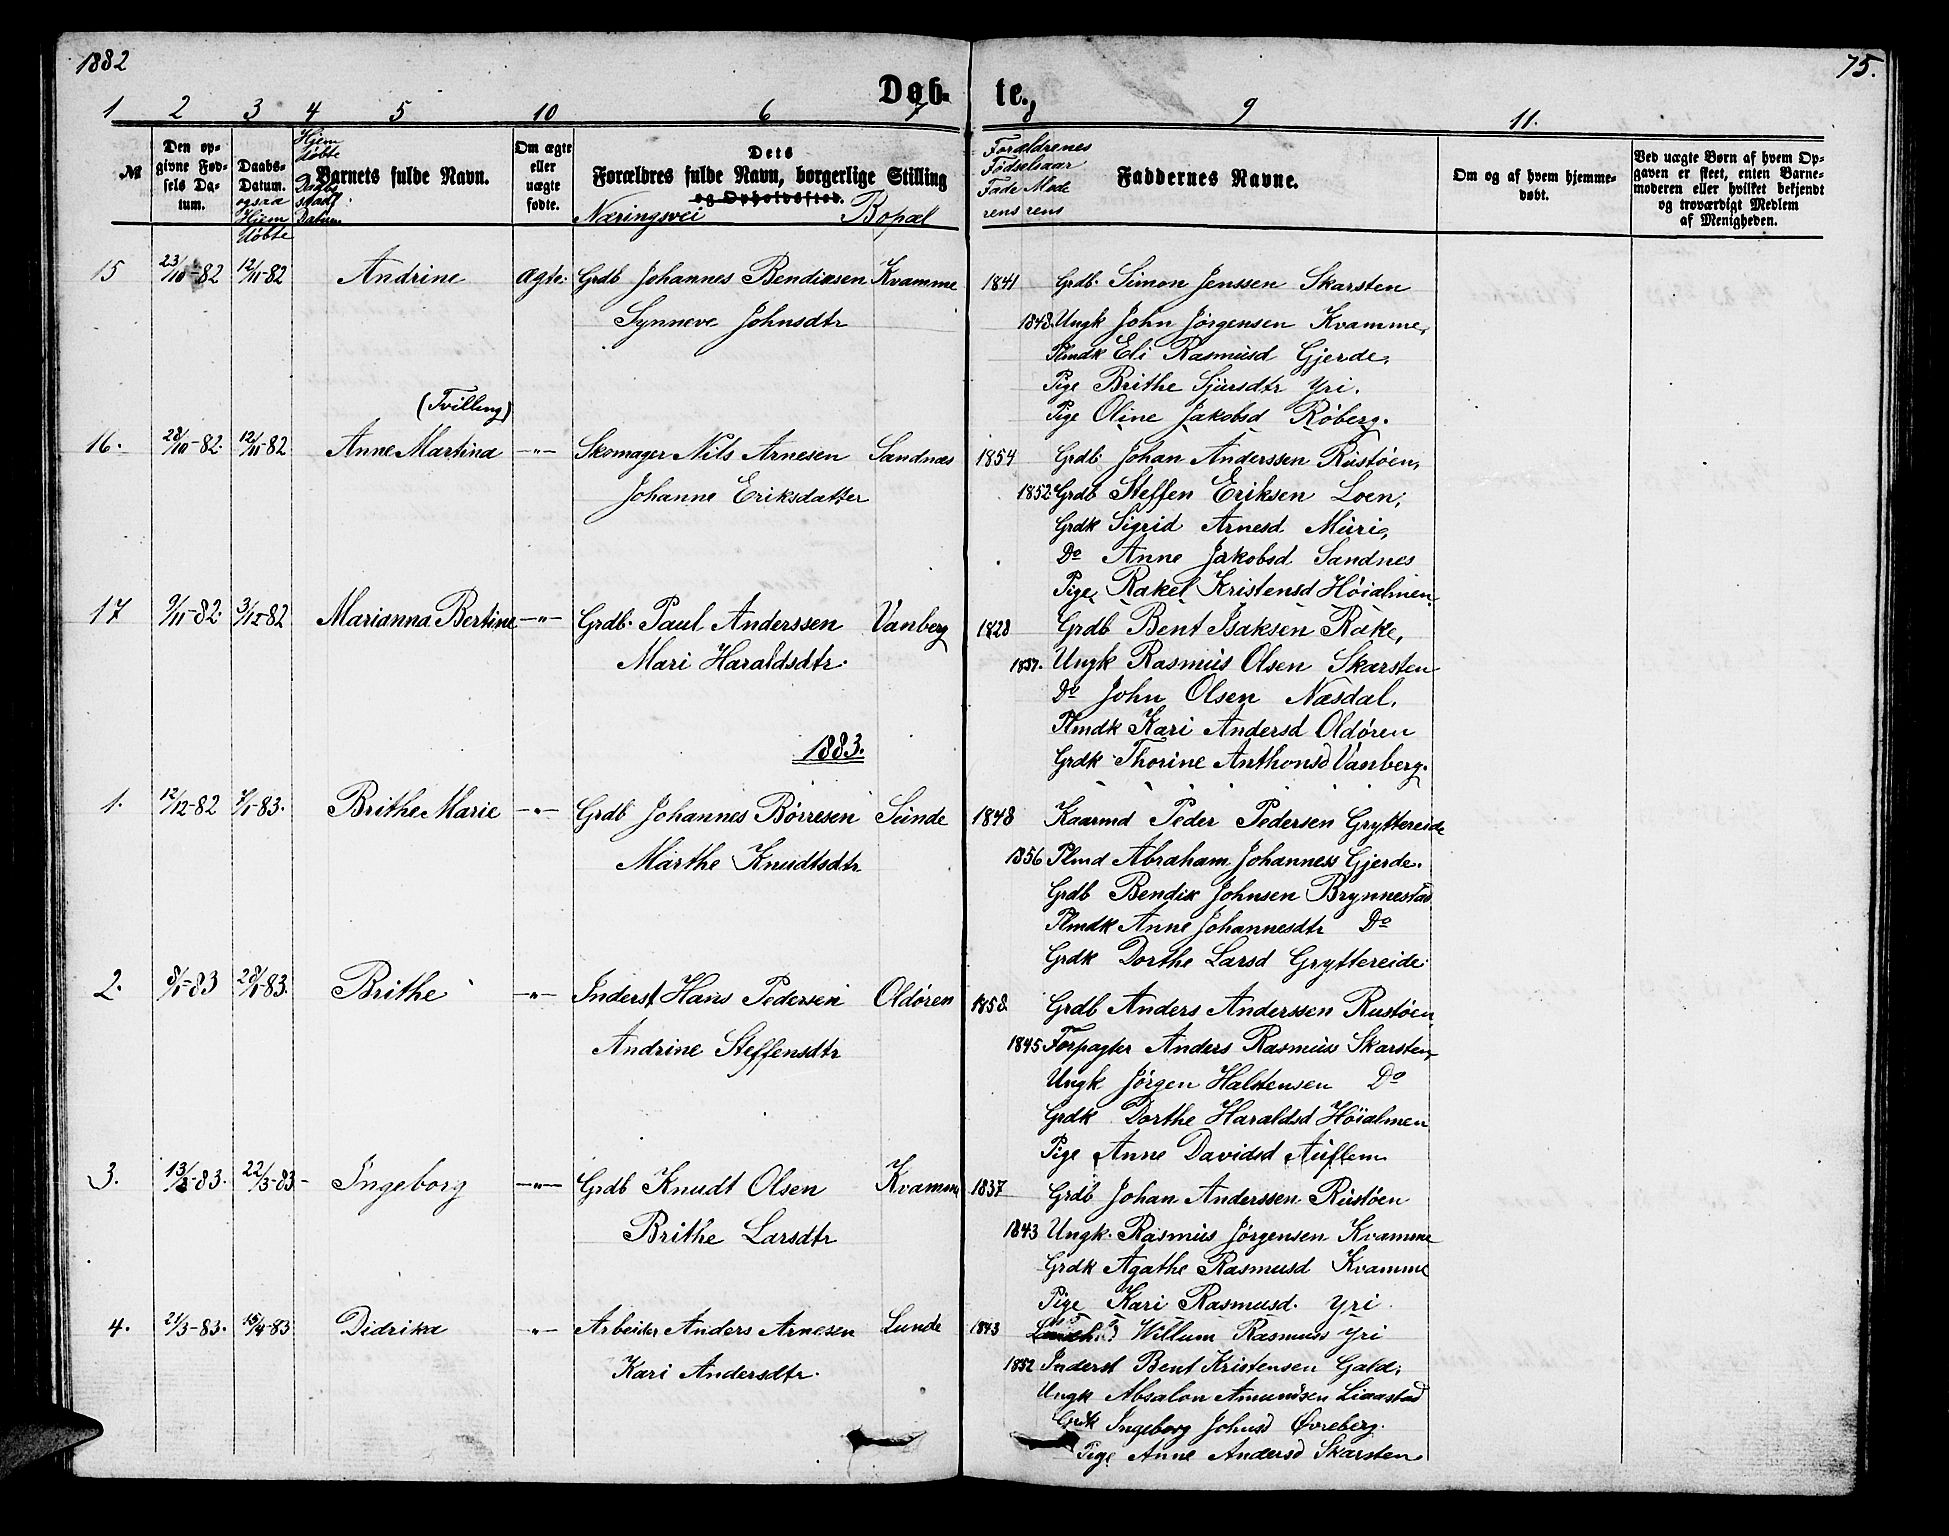 1882
75.
Døb-
te.
1 2 3 4 5 10 6 7 8 9 11.
№
Den opgivne Fødsels Datum.
Daabs-Datum. ogsaa Hjem døbte
Hjem døbte Daabs stadf. Datum
Barnets fulde Navn.
Om ægte eller uægte fødte.
Dets Forældres fulde Navn, borgerlige Stilling og Opholdssted.
Næringsvei Bopæl
Forældrenes Fødselsaar Fade Mode rens rens
Faddernes Navne.
Om og af hvem hjemmedøbt.
Ved uægte Børn af hvem Opgaven er skeet, enten Barnemoderen eller hvilket bekjendt og troværdigt Medlem af Menigheden.
15 23/10-82 12/11-82 Andrine ægte Grdb Johannes Bendixsen Kvamme 1841 Grdb. Simon Jenssen Skarsten
Synneve Johnsdtr 1848. Ungk John Jørgensen Kvamme,
Plmdk Eli Rasmusd Gjerde,
Pige Brithe Sjursdtr Yri.
Pige Oline Jakobsd Røberg.
(Tvilling)
16. 28/10-82. 12/11-82 Anne Martina -"- Skomager Nils Arnesen Sandnæs 1854 Grdb. Johan Anderssen Rustøen,
Johanne Eriksdatter 1852 Grdb Steffen Eriksen Loen,
Grdk Sigrid Arnesd Muri,
Do Anne Jakobsd Sandnes
Pige, Rakel Kristensd Høialmen.
17 9/11-82. 3/12-82 Marianna Bertine -"- Grdb. Paul Anderssen Vanberg 1828 Grdb Bent Isaksen Rake,
Mari Haraldsdtr. 1837. Ungk Rasmus Olsen Skarsten
Do John Olsen Næsdal,
Plmdk Kari Andersd Oldøren
1883. Grdk Thorine Anthonsd Vanberg.
1. 12/12-82 7/1-83. Brithe Marie -"- Grdb Johannes Børresen Sunde 1848 Kaarmd Peder Pedersen Gryttereide
Marthe Knudtsdtr 1856 Plmd Abraham Johanness Gjerde.
Grdb Bendix Johnsen Brynnestad
Plmdk Anne Johannesdtr Do
Grdk Dorthe Larsd Gryttereide
2. 8/1-83 28/1-83. Brithe -"- Inderst Hans Pedersen Oldøren 1858. Grdb Anders Anderssen Rustøen
Andrine Steffensdtr 1845 Forpagter Anders Rasmuss Skarsten,
Ungk Jørgen Halstensen Do
Grdk Dorthe Haraldsd Høialmen
Pige Anne Davidsd Auflem
3. 13/2-83. 22/3-83- Ingeborg -"- Grdb Knudt Olsen Kvamme 1837 Grdb Johan Anderssen Rustøen
Brithe Larsdtr 1843 Ungk. Rasmus Jørgensen Kvamme
Grdk Agathe Rasmusd Kvamme
Pige Kari Rasmusd. Yri
4. 21/3-83. 15/4-83 Didrika -"- Arbeider Anders Arnesen Lunde 1843 Willum Rasmuss Yri
Kari Andersdtr. 1852 Inderst Bent Kristensen Gald,
Ungk Absalon Amundsen Liaastad
Grdk Ingeborg Johnsd Øvreberg.
Pige Anne Andersd Skarsten